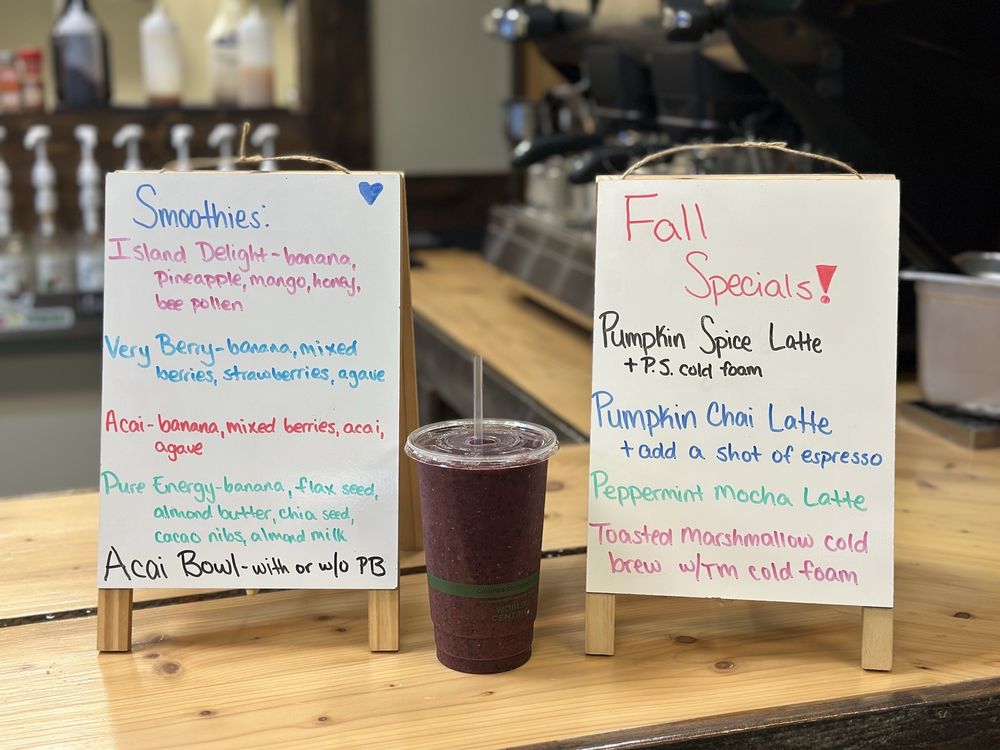 Smoothies:
Island Delight-banana,
Pineapple, mango, honey,
bee pollen
Very Berry-banana, mixed
berries, strawberries, agave
Acai-banana, mixed berries, acai,
agave
Pure Energy-banana, flax seed,
almond butter, chia seed,
cacao nibs, almond milk
Acai Bowl-with or w/o PB
WORLD
CENTRIC
Fall
Specials!
Pumpkin Spice Latte
+ P.S. cold foam
Pumpkin Chai Latte
+ add a shot of espresso
Peppermint Mocha Latte
Toasted Marshmallow cold
brew w/TM cold foam